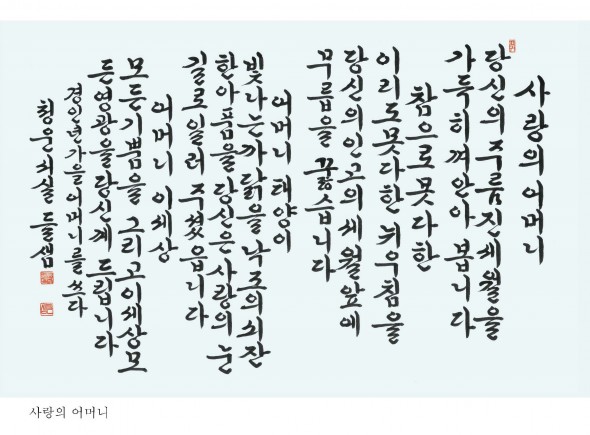 사랑의 어머니
당신의 주름진 세월을
가득히 껴안아 봅니다
참으로 못다한
이리도 못다한 뉘우침을
당신의 인고의 세월 앞에
무릅을 꿇습니다
어머니 태양이
빛나는 까닭을 낙조의 쇠잔
한 아픔을 당신은 사랑의 눈
길로 일러 주셨읍니다
어머니 이 세상
모든 기쁨을 그리고 이 세상 모
든 영광을 당신께 드립니다
경인년 가을 어머니를 쓰다
청운거실 들샘
사랑의 어머니